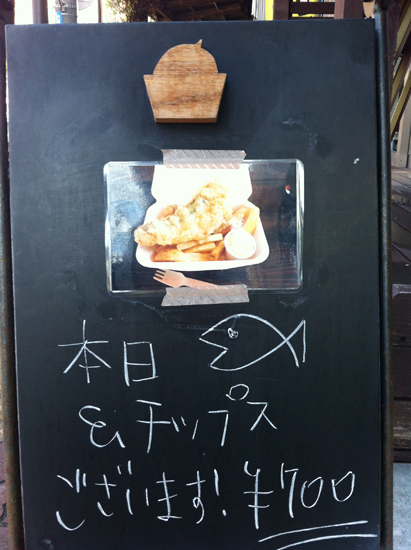 本日
&チップス
ございます!¥700